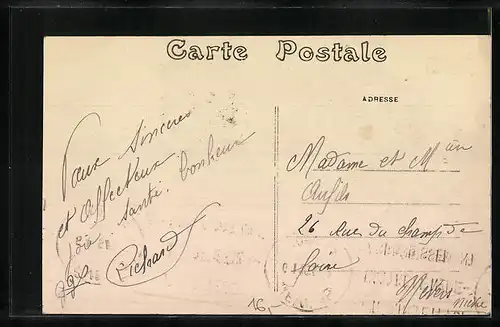 Carte Postale
ADRESSE
Vœux Sincères
et Affectueux
de santé. bonheur
Richard
Madame et M
26 Rue du champ de
foire
Nevers
Nièvre
16,-